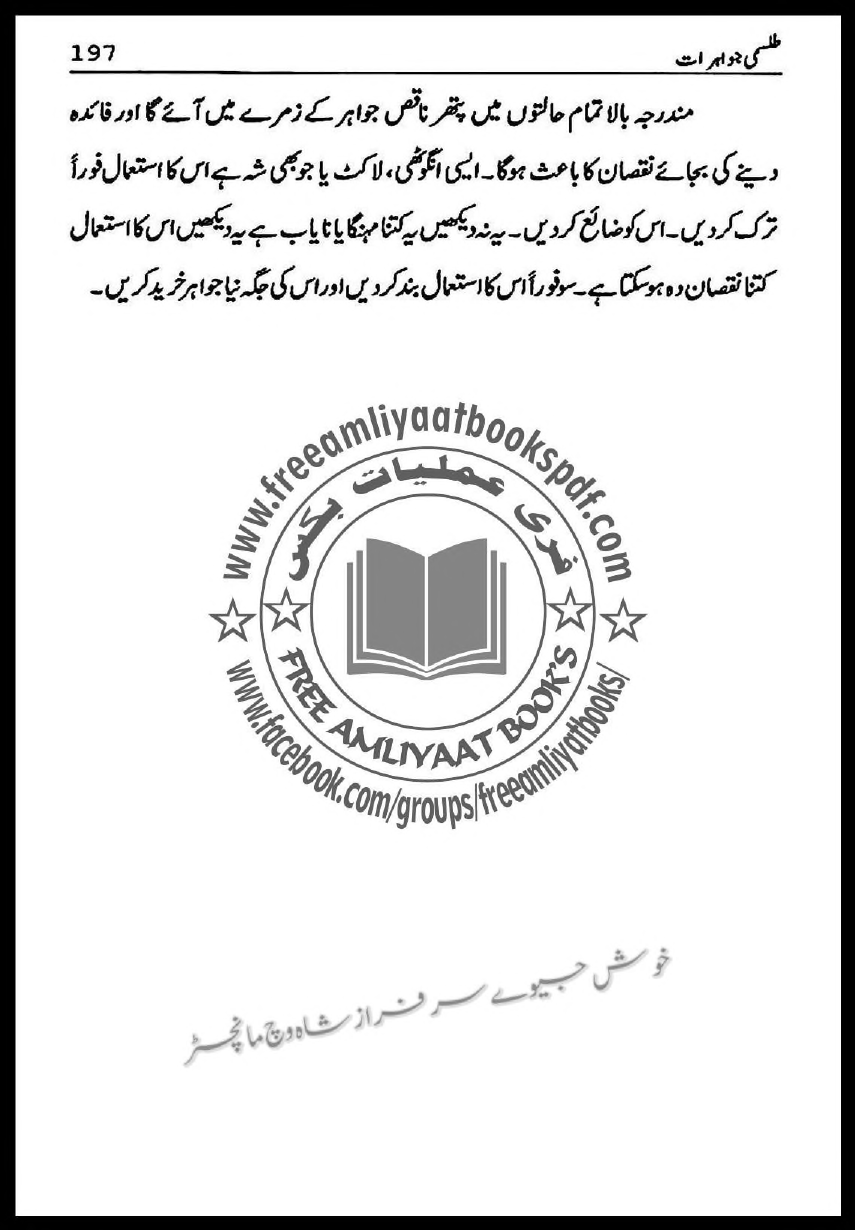 طلسمی جواہرات
197
مندرجہ بالا تمام حالتوں میں پتھر ناقص جواہر کے زمرے میں آئے گا اور فائدہ
دینے کی بجائے نقصان کا باعث ہوگا۔ ایسی انگوٹھی، لاکٹ یا جو بھی شہ ہے اس کا استعمال فوراً
ترک کر دیں۔ اس کو ضائع کر دیں۔ یہ نہ دیکھیں یہ کتنا مہنگا یا نایاب ہے یہ دیکھیں اس کا استعمال
کتنا نقصان دہ ہو سکتا ہے۔ سو فوراً اس کا استعمال بند کر دیں اور اس کی جگہ نیا جواہر خرید کریں۔
www.freeamliyaatbookspdf.com
فری عملیات بکس
FREE AMLIYAAT BOOK'S
www.facebook.com/groups/freeamliyatbooks/
خوش جیوے سرفراز شاہ وچ مانچسٹر